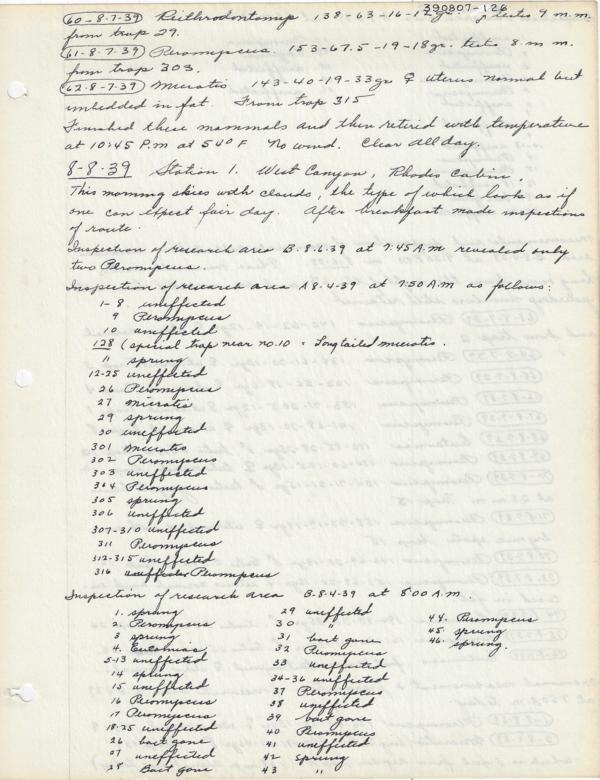 390807-126
60-8.7-39 Reithrodontomys 138-63-16-12gr. ♂ testes 9 m.m.
from trap 29.
61-8.7.39 Peromyscus. 153-67.5-19-18gr. testes 8 m m.
from trap 303.
62.8-7.39 Microtis 143-40-19-33gr ♀ uterus normal but
imbedded in fat. From trap 315
Finished these mammals and then retired with temperature
at 10:45 P.m at 54° F No wind. Clear all day.
8-8-39 Station 1. West Canyon, Rhodes Cabin.
This morning skies with clouds, the type of which look as if
one can expect fair day. After breakfast made inspections
of route.
Inspection of research area B.8.6.39 at 7:45 A.m revealed only
two Peromyscus.
Inspection of research area A8-4-39 at 7:50 A.M as follows:
1-8 uneffected
9 Peromyscus
10 uneffected
128 (special trap near no.10 = Longtailed microtis.
11 sprung
12-25 uneffected
26 Peromyscus
27 microtis
29 sprung
30 uneffected
301 microtis
302 Peromyscus
303 uneffected
304 Peromyscus
305 sprung
306 uneffected
307-310 uneffected
311 Peromyscus
312-315 uneffected
316 Peromyscus
Inspection of research area B-8-4-39 at 8:00 A.m.
1. sprung
2. Peromyscus
3 sprung
4. Eutamias
5-13 uneffected
14 sprung
15 uneffected
16 Peromyscus
17 Peromyscus
18-25 uneffected
26 bait gone
27 uneffected
28 Bait gone
29 uneffected
30 "
31 bait gone
32 Peromyscus
33 uneffected
34-36 uneffected
37 Peromyscus
38 uneffected
39 bait gone
40 Peromyscus
41 uneffected
42 sprung
43 "
44. Peromyscus
45 sprung
46. sprung.